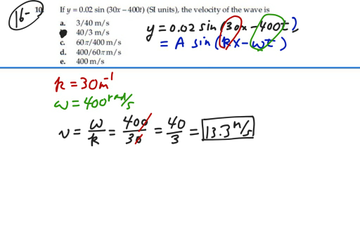 16-
10. If y = 0.02 sin (30x – 400t) (SI units), the velocity of the wave is
a. 3/40 m/s
40/3 m/s
c. 60π/400 m/s
d. 400/60π m/s
e. 400 m/s
y = 0.02 sin (30x - 400t)
= A sin (kx - ωt)
k = 30 m⁻¹
ω = 400 rad/s
v = ω/k = 400/30 = 40/3 = 13.3 m/s